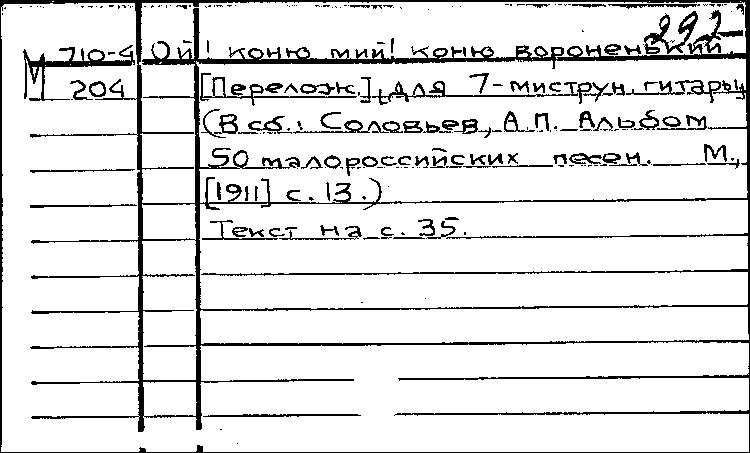 292
М 710-4 Ой! коню мий! коню вороненький.
204 [Перелож.] для 7-миструн. гитары
(В сб.: Соловьев, А.П. Альбом
50 малороссийских песен. М.,
[1911] с. 13.)
Текст на с. 35.